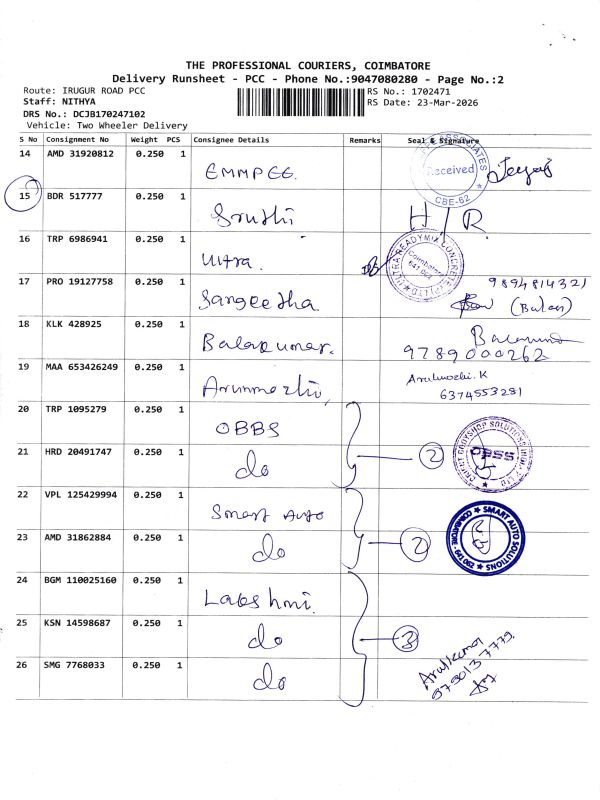 THE PROFESSIONAL COURIERS, COIMBATORE
Delivery Runsheet - PCC - Phone No.:9047080280 - Page No.:2
Route: IRUGUR ROAD PCC
RS No.: 1702471
Staff: NITHYA
RS Date: 23-Mar-2026
DRS No.: DCJB170247102
Vehicle: Two Wheeler Delivery
S No Consignment No Weight PCS Consignee Details Remarks Seal & Signature
14 AMD 31920812 0.250 1 EMMPEE Received CBE-62
15 BDR 517777 0.250 1 Sruthi H/R.
16 TRP 6986941 0.250 1 Ultra. ULTRA READYMIX CONCRETE (P) LTD Coimbatore
17 PRO 19127758 0.250 1 Sangeetha 9894814321
(Balan)
18 KLK 428925 0.250 1 Balakumar. 9789000262
19 MAA 653426249 0.250 1 Arunmozhi, Arulmozhi.K
6374553281
20 TRP 1095279 0.250 1 OBBS
21 HRD 20491747 0.250 1 do 2 OBSS
22 VPL 125429994 0.250 1 Smart Auto
23 AMD 31862884 0.250 1 do 2 SMART AUTO SOLUTIONS COIMBATORE
24 BGM 110025160 0.250 1 Lakshmi.
25 KSN 14598687 0.250 1 do 3 Arulkumar
26 SMG 7768033 0.250 1 do